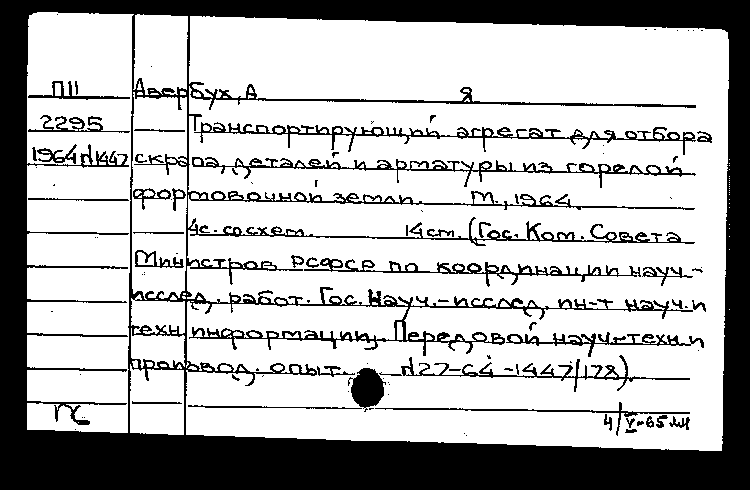 П11 Авербух, А Я
2295 Транспортирующий агрегат для отбора
1964 N1447 скрапа, деталей и арматуры из горелой
формовочной земли. М., 1964.
4с. со схем. 14 см. (Гос. Ком. Совета
Министров РСФСР по координации науч.-
исслед. работ. Гос. Науч.-исслед. ин-т науч. и
техн. информации. Передовой науч.-техн. и
производ. опыт. N27-64-1447/178).
4/V-65